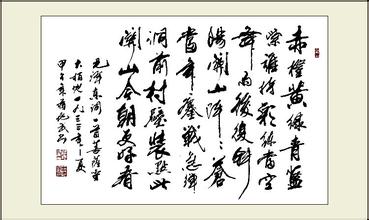 赤橙黃綠青藍
紫誰持彩練當空
舞雨後復斜
陽關山陣陣蒼
當年鏖戰急彈
洞前村壁裝點此
關山今朝更好看
毛澤東詞一首菩薩蠻
大柏地一九三三年夏
甲午年